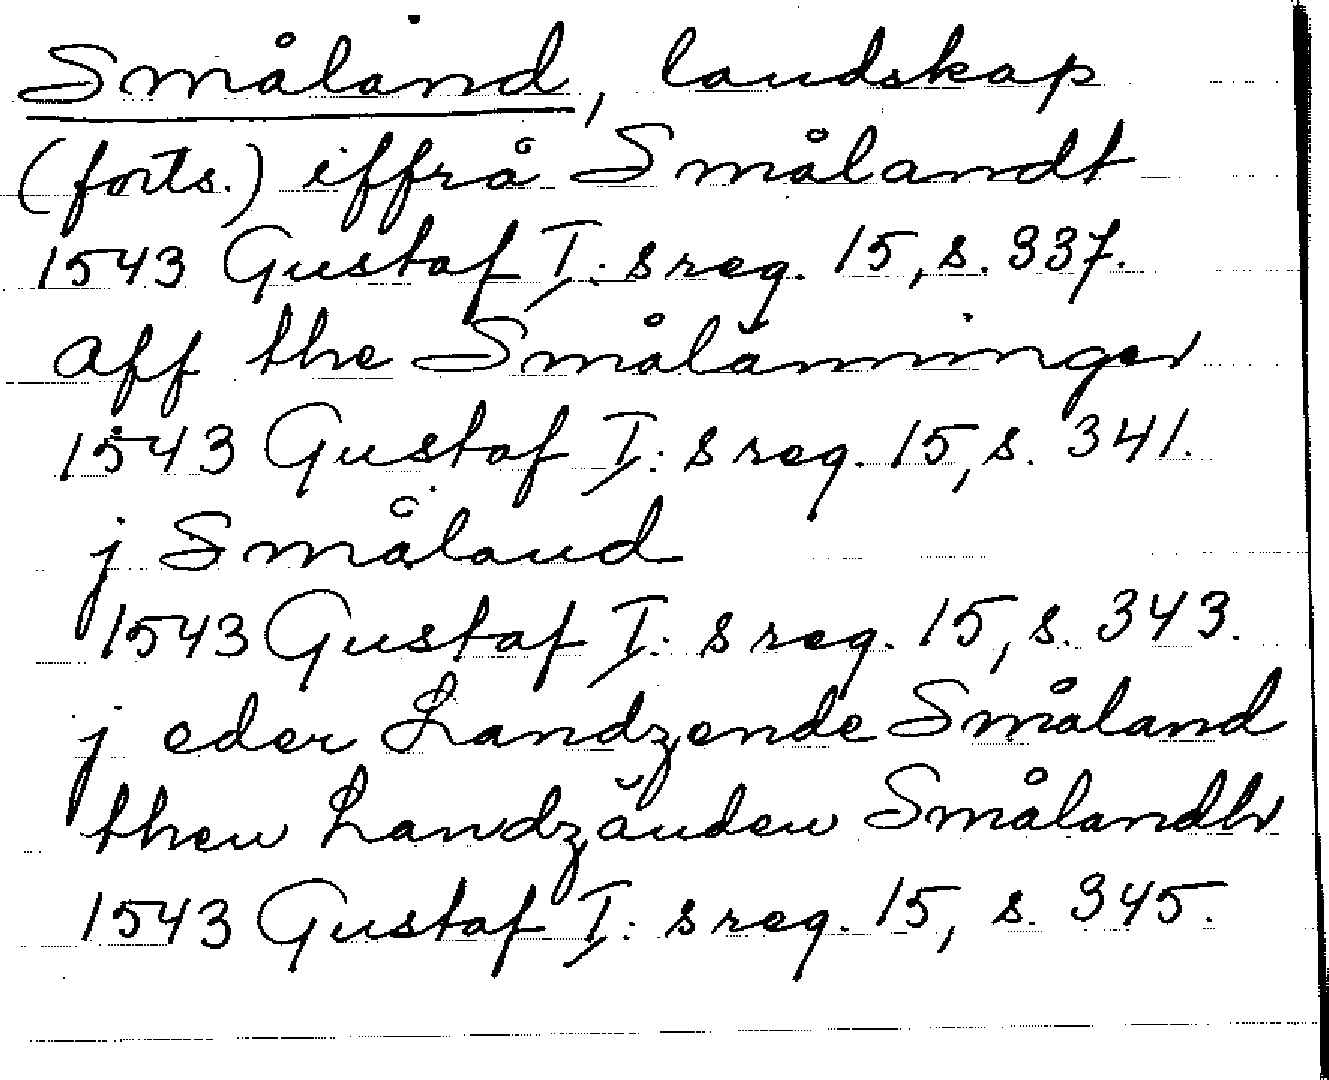 Småland, landskap
(forts.) iffrå Smålandt
1543 Gustaf I:s reg. 15, s. 337.
aff the Smålänninger
1543 Gustaf I:s reg. 15, s. 341.
j Småland
1543 Gustaf I:s reg. 15, s. 343.
j eder Landzende Småland
then Landzänden Smålandh
1543 Gustaf I:s reg. 15, s. 345.